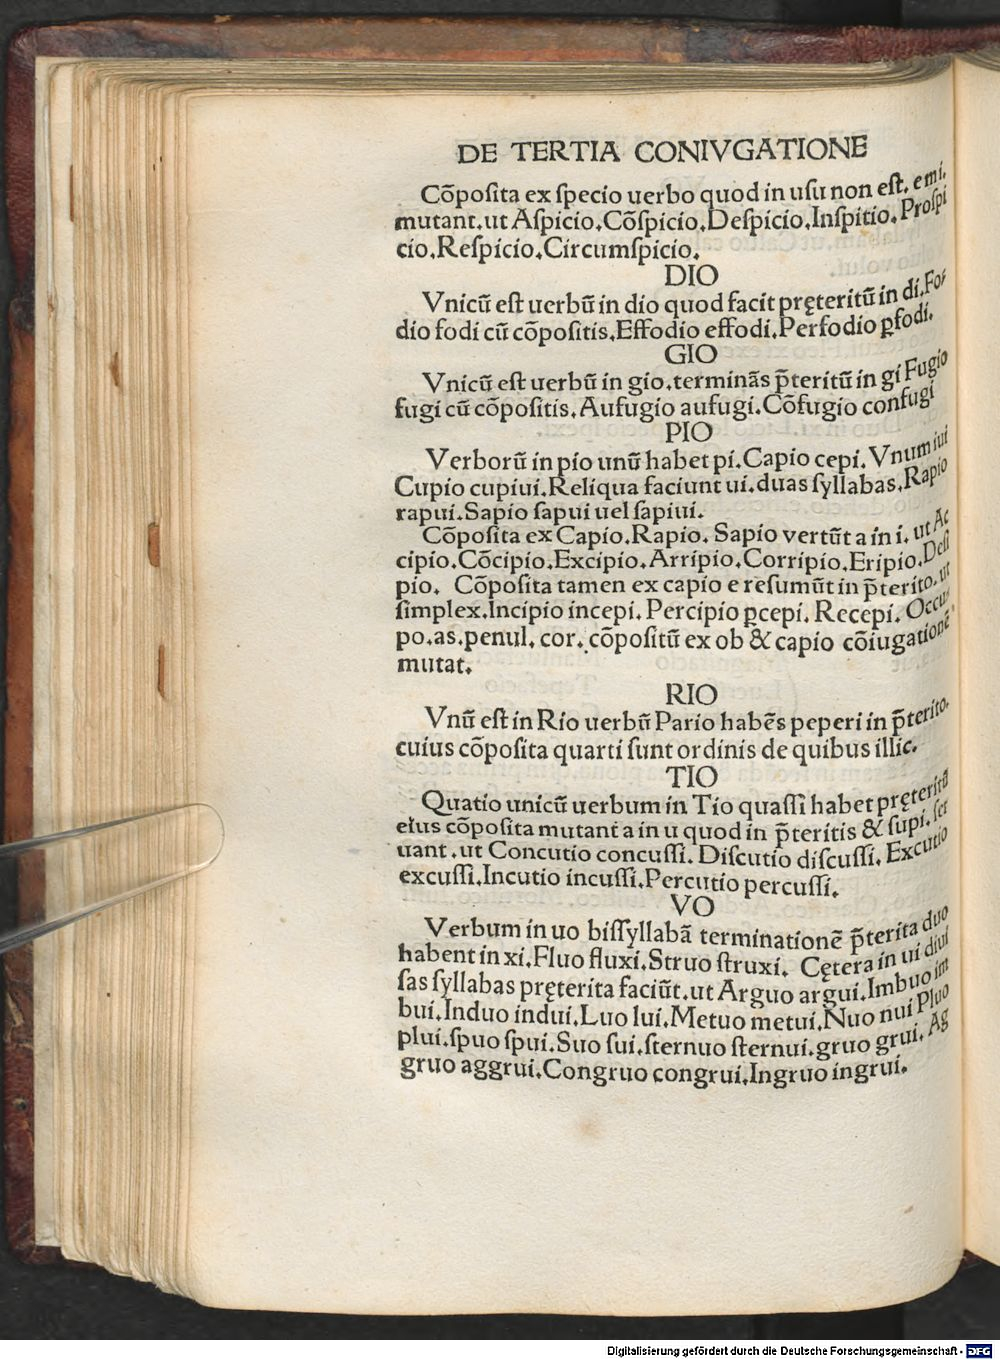 DE TERTIA CONIVGATIONE
Cōpoſita ex ſpecio uerbo quod in uſu non eſt. e mi.
mutant. ut Aſpicio. Cōſpicio. Deſpicio. Inſpitio. Proſpi
cio. Reſpicio. Circumſpicio.
DIO
Vnicū eſt uerbū in dio quod facit pręteritū in di. Fo⸗
dio fodi cū cōpoſitis. Effodio effodi. Perfodio ꝑfodi.
GIO
Vnicū eſt uerbū in gio. terminās p̄teritū in gi Fugio
fugi cū cōpoſitis. Aufugio aufugi. Cōfugio confugi
PIO
Verborū in pio unū habet pi. Capio cepi. Vnum iui
Cupio cupiui. Reliqua faciunt ui. duas ſyllabas. Rapio
rapui. Sapio ſapui uel ſapiui.
Cōpoſita ex Capio. Rapio. Sapio vertūt a in i. ut Ac
cipio. Cōcipio. Excipio. Arripio. Corripio. Eripio. Deſi
pio. Cōpoſita tamen ex capio e reſumūt in p̄terito. ut
ſimplex. Incipio incepi. Percipio ꝑcepi. Recepi. Occu⸗
po. as. penul. cor. cōpoſitū ex ob & capio cōiugationē
mutat.
RIO
Vnū eſt in Rio uerbū Pario habēs peperi in p̄terito.
cuius cōpoſita quarti ſunt ordinis de quibus illic.
TIO
Quatio unicū uerbum in Tio quaſſi habet pręteritū
eius cōpoſita mutant a in u quod in p̄teritis & ſupi. ſer
uant. ut Concutio concuſſi. Diſcutio diſcuſſi. Excutio
excuſſi. Incutio incuſſi. Percutio percuſſi.
VO
Verbum in uo biſſyllabā terminationē p̄terita duo
habent in xi. Fluo fluxi. Struo ſtruxi. Cętera in ui diui
ſas ſyllabas pręterita faciūt. ut Arguo argui. Imbuo im
bui. Induo indui. Luo lui. Metuo metui. Nuo nui Pluo
plui. ſpuo ſpui. Suo ſui. ſternuo ſternui. gruo grui. Ag
gruo aggrui. Congruo congrui. Ingruo ingrui.
Digitalisierung gefördert durch die Deutsche Forschungsgemeinschaft - DFG